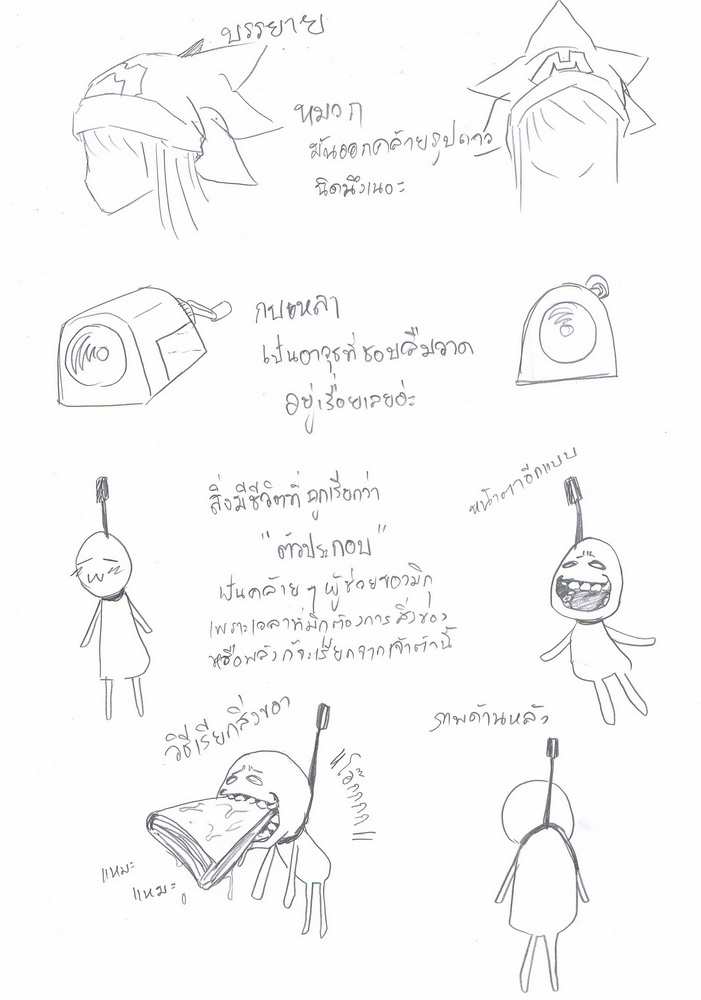 บรรยาย
หมวก
มันออกคล้ายรูปดาว
นิดนึงเนอะ
กบเหลา
เป็นอาวุธที่ชอบลืมวาด
อยู่เรื่อยเลยอ่ะ
สิ่งมีชีวิตที่ถูกเรียกว่า
"ตัวประกอบ"
เป็นคล้ายๆผู้ช่วยของมิกุ
เพราะเวลาที่มิกุต้องการสิ่งของ
หรือพลังก็จะเรียกจากเจ้าตัวนี้
หน้าตาอีกแบบ
วิธีเรียกสิ่งของ
แหมะ
แหมะ
ภาพด้านหลัง